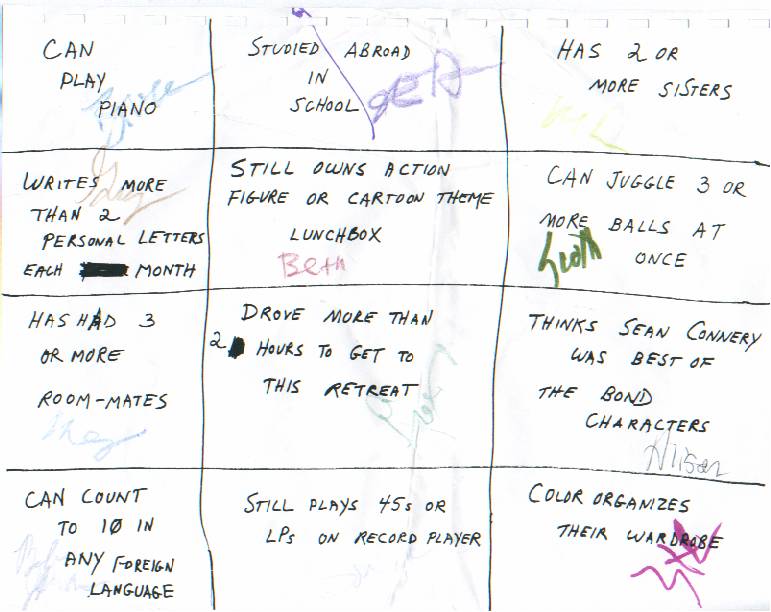 CAN
PLAY
PIANO
STUDIED ABROAD
IN
SCHOOL
HAS 2 OR
MORE SISTERS
WRITES MORE
THAN 2
PERSONAL LETTERS
EACH MONTH
STILL OWNS ACTION
FIGURE OR CARTOON THEME
LUNCHBOX
Beth
CAN JUGGLE 3 OR
MORE BALLS AT
ONCE
Scott
HAS HAD 3
OR MORE
ROOM-MATES
DROVE MORE THAN
2 HOURS TO GET TO
THIS RETREAT
THINKS SEAN CONNERY
WAS BEST OF
THE BOND
CHARACTERS
CAN COUNT
TO 10 IN
ANY FOREIGN
LANGUAGE
STILL PLAYS 45s OR
LPs ON RECORD PLAYER
COLOR ORGANIZES
THEIR WARDROBE